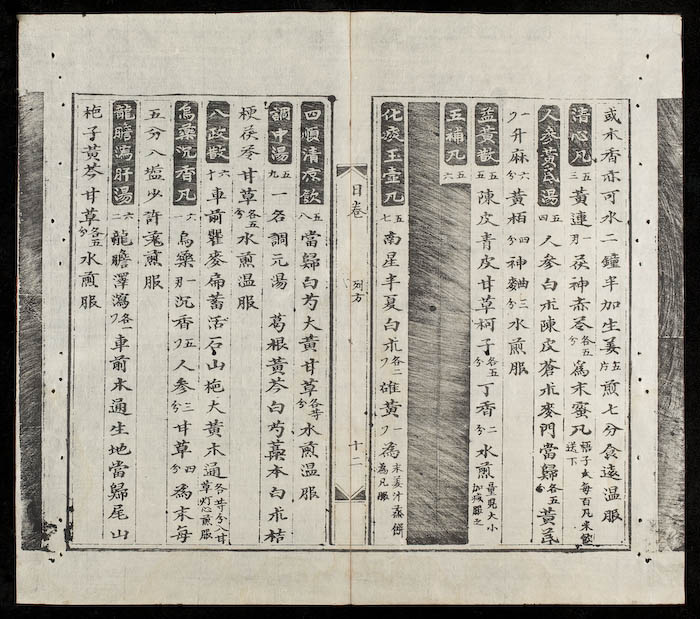 或木香亦可水二鍾半加生姜五片煎七分食遠温服
清心凡五三黃連一刃茯神赤苓各五分爲末蜜凡梧子大每百凡米飲送下
人參黃芪湯五四人參白朮陳皮蒼朮麥門當歸各五分黃芪
一分升麻六分黃栢四分神麯三分水煎服
益黃散五五陳皮青皮甘草柯子各五分丁香二分水煎量児大小加减服之
五補凡五六
化痰玉壺凡五七南星半夏白朮各二刀雄黃一刀為末姜汁蒸餅為凡服
目卷 列方 十二
四順清凉飲五八當歸白芍大黃甘草各等分水煎温服
調中湯五九一名調元湯 葛根黃芩白芍藁本白朮桔
梗茯苓甘草各五分水煎温服
八政散六十車前瞿麥扁蓄活石山梔大黃木通各等分甘草灯心煎服
烏藥沉香凡六一烏藥一那沉香五刀人參三分甘草四分為末每
五分入塩少許煎服
龍膽瀉肝湯六二龍膽澤瀉各一刀車前木通生地當歸尾山
梔子黃芩甘草各五分水煎服